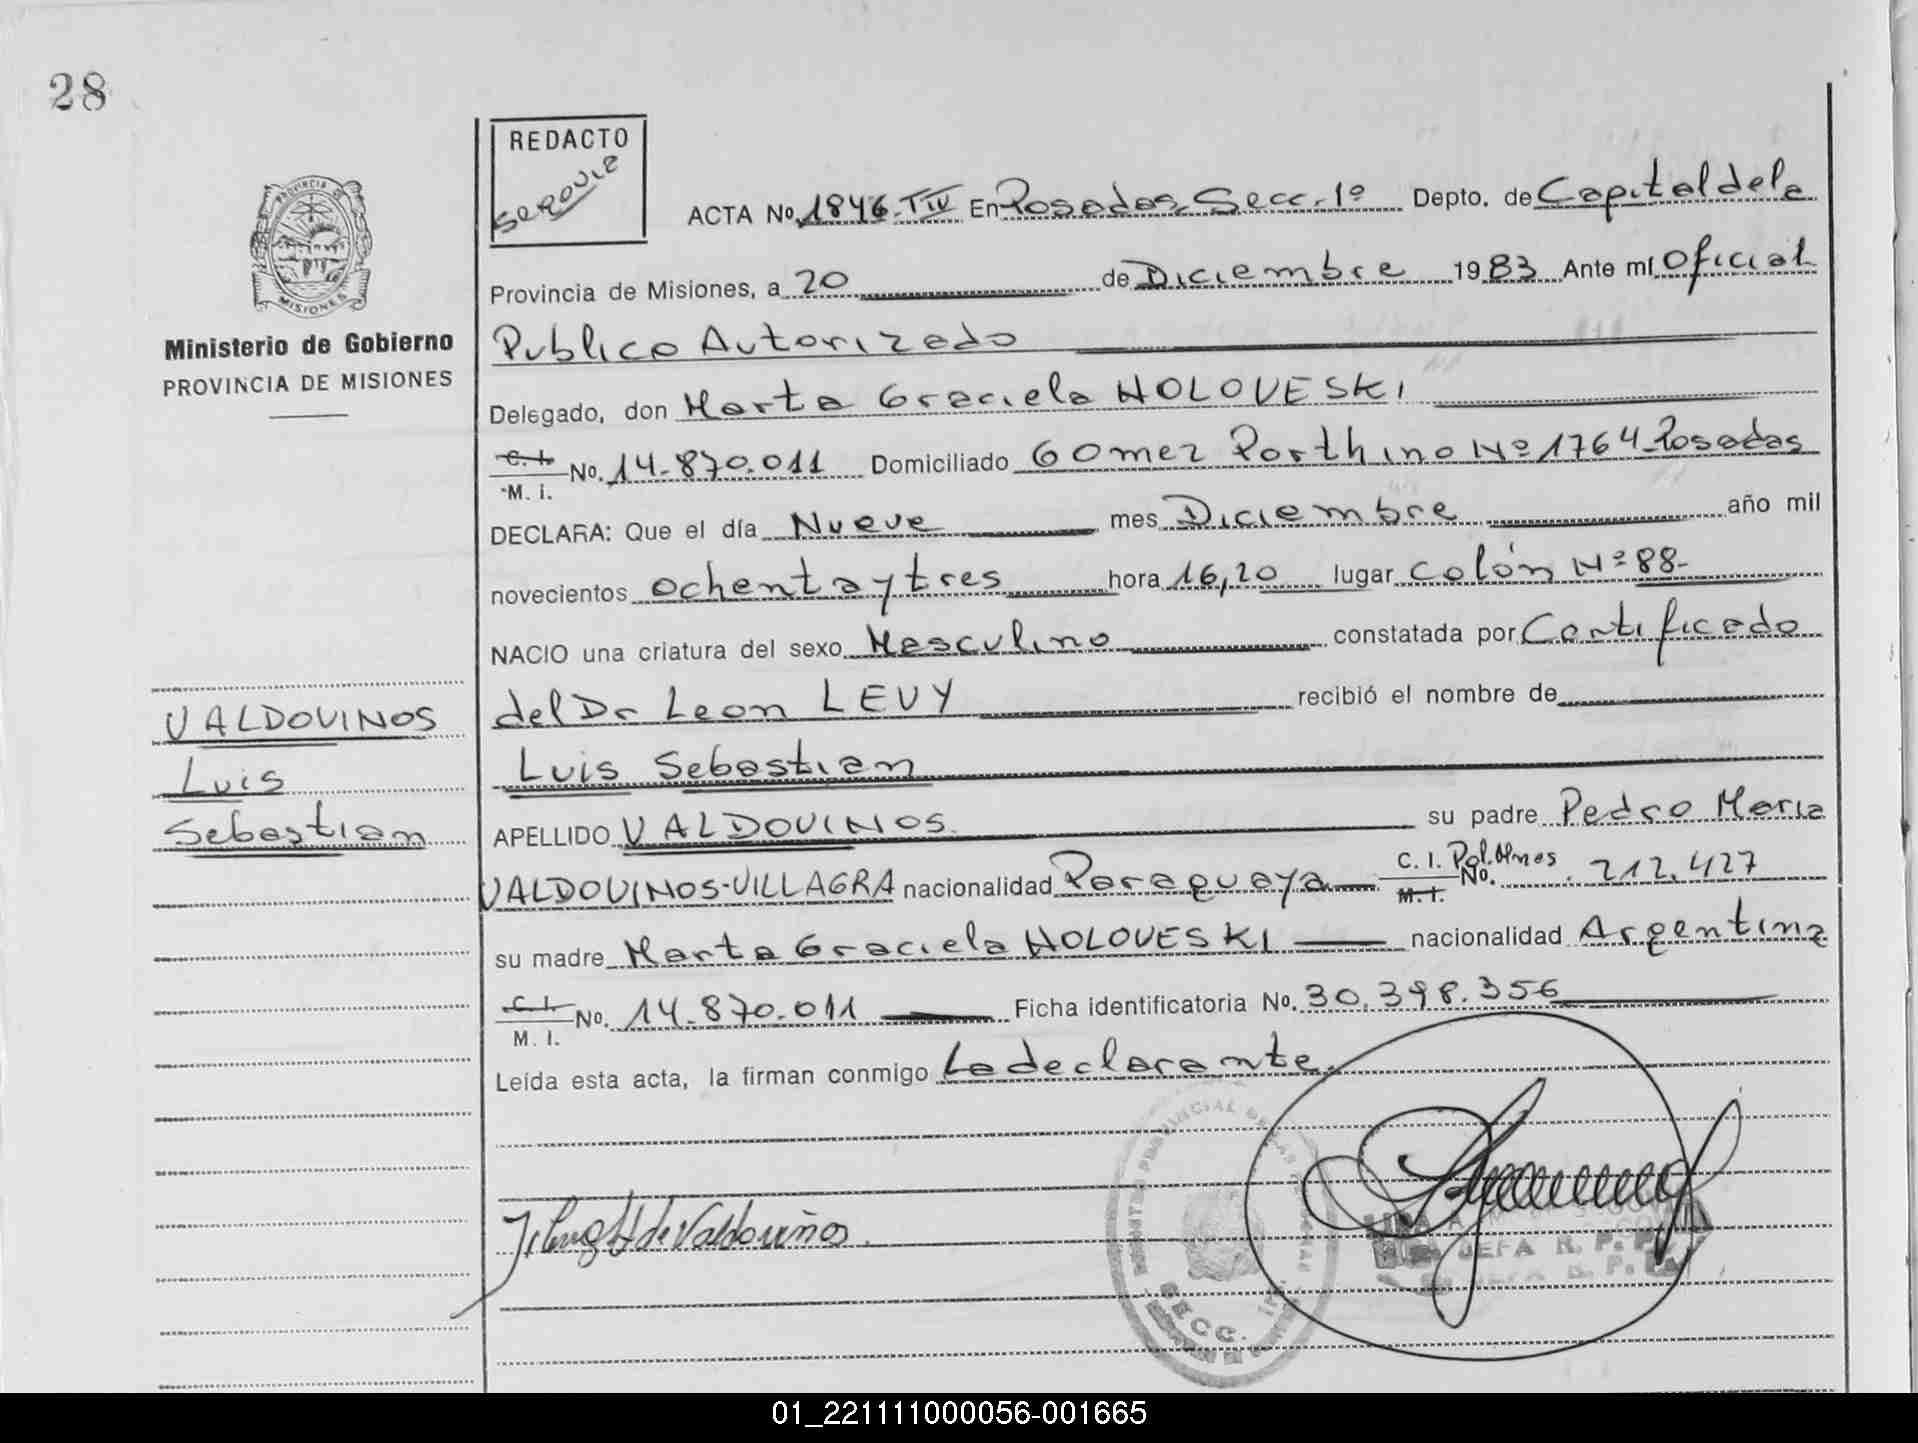 28
REDACTO
SEGOVIA
PROVINCIA DE
MISIONES
Ministerio de Gobierno
PROVINCIA DE MISIONES
ACTA No. 1846-TIV En Posadas Secc. 1º Depto. de Capital de la
Provincia de Misiones, a 20 de Diciembre 1983 Ante mí Oficial
Publico Autorizado
Delegado, don Marta Graciela HOLOVESKI
C. I.
M. I. No. 14.870.011 Domiciliado Gomez Porthino Nº 1764-Posadas
DECLARA: Que el día Nueve mes Diciembre año mil
novecientos ochenta y tres hora 16,20 lugar Colón Nº 88-
NACIO una criatura del sexo Masculino constatada por Certificado
del Dr Leon LEVY recibió el nombre de
Luis Sebastian
APELLIDO VALDOVINOS su padre Pedro Maria
VALDOVINOS-VILLAGRA nacionalidad Paraguaya C. I. Pol. Mnes
M. I. No. 212.427
su madre Marta Graciela HOLOVESKI nacionalidad Argentina
C. I.
M. I. No. 14.870.011 Ficha identificatoria No. 30.398.356
Leída esta acta, la firman conmigo La declarante.
VALDOVINOS
Luis
Sebastian
de Valdovinos.
SECC.
JEFA R. P. P.
01_221111000056-001665